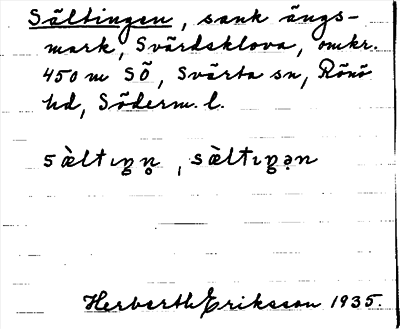 Sältingen, sank ängs-
mark, Svärdsklova, omkr.
450 m SÖ, Svärta sn, Rönö
hd, Söderm. l.
sàltıŋn̥, sàltıŋən
Herberth Eriksson 1935.